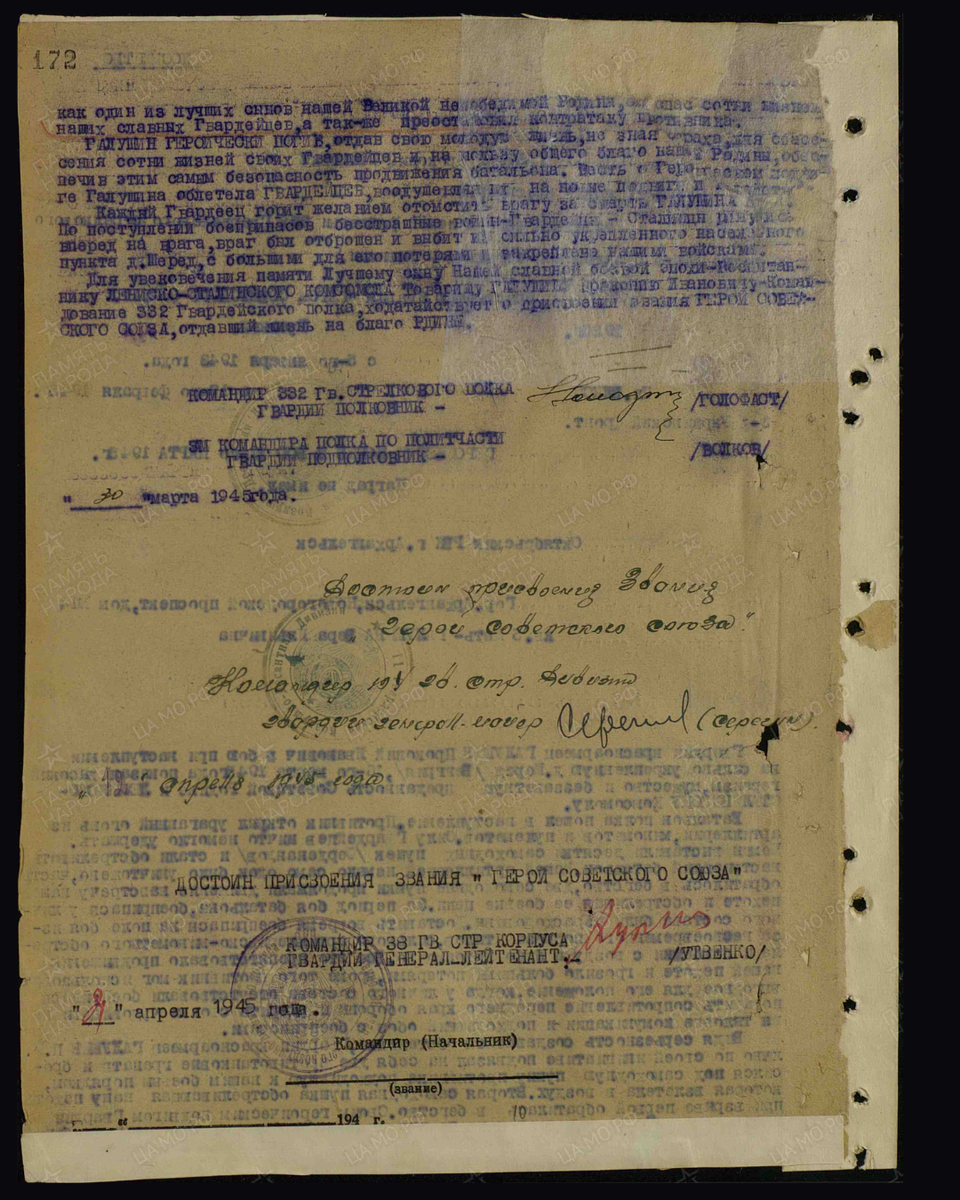 172
как один из лучших сынов нашей Великой непобедимой Родины, он спас сотни жизней
наших славных Гвардейцев, а так-же преостановил контратаку противника.
ГАЛУШИН ГЕРОИЧЕСКИ ПОГИБ, отдав свою молодую жизнь, не зная страха, для спасе-
сения сотни жизней своих Гвардейцев и на пользу общего благо нашей Родины, обес-
печив этим самым безопасность продвижения батальона. Весть о Героическом подви-
ге Галушина облетела ГВАРДЕЙЦЕВ, воодушевляя их на новые подвиги и
Каждый Гвардеец горит желанием отомстить врагу за смерть ГАЛУШИНА
По поступлении боеприпасов бесстрашные воины-Гвардейцы - Сталинцы ринулись
вперед на врага, враг был отброшен и выбит из сильно укрепленного населенного
пункта д.Шеред, с большими для его потерями и закреплена нашими войсками.
Для увековечения памяти Лучшему сыну Нашей славной боевой эпохи-Воспитан-
нику ЛЕНИСКО-СТАЛИНСКОГО КОМСОМОЛА Товарищу ГАЛУШИНУ Прокопию Ивановичу-Коман-
дование 332 Гвардейского полка, ходатайствует о присвоении звания ГЕРОЙ СОВЕТ-
СКОГО СОЮЗА, отдавший жизнь на благо РДИНЫ.
КОМАНДИР 332 Гв. СТРЕЛКОВОГО ПОЛКА
ГВАРДИИ ПОЛКОВНИК - /ГОЛОФАСТ/
ЗМ КОМАНДИРА ПОЛКА ПО ПОЛИТЧАСТИ
ГВАРДИИ ПОДПОЛКОВНИК - /ВОЛКОВ/
" 30 "марта 1945года.
Достоин присвоения Звания
"Герой Советского Союза".
Командир 104 гв. стр. дивизии
гвардии генерал-майор (Серегин).
" " апреля 1945 года
ДОСТОИН ПРИСВОЕНИЯ ЗВАНИЯ " ГЕРОЙ СОВЕТСКОГО СОЮЗА"
КОМАНДИР 38 ГВ СТР КОРПУСА
ГВАРДИИ ГЕНЕРАЛ-ЛЕЙТЕНАНТ.- /УТВЕНКО/
" " апреля 1945 года.
Командир (Начальник)
(звание)
" 194 г.